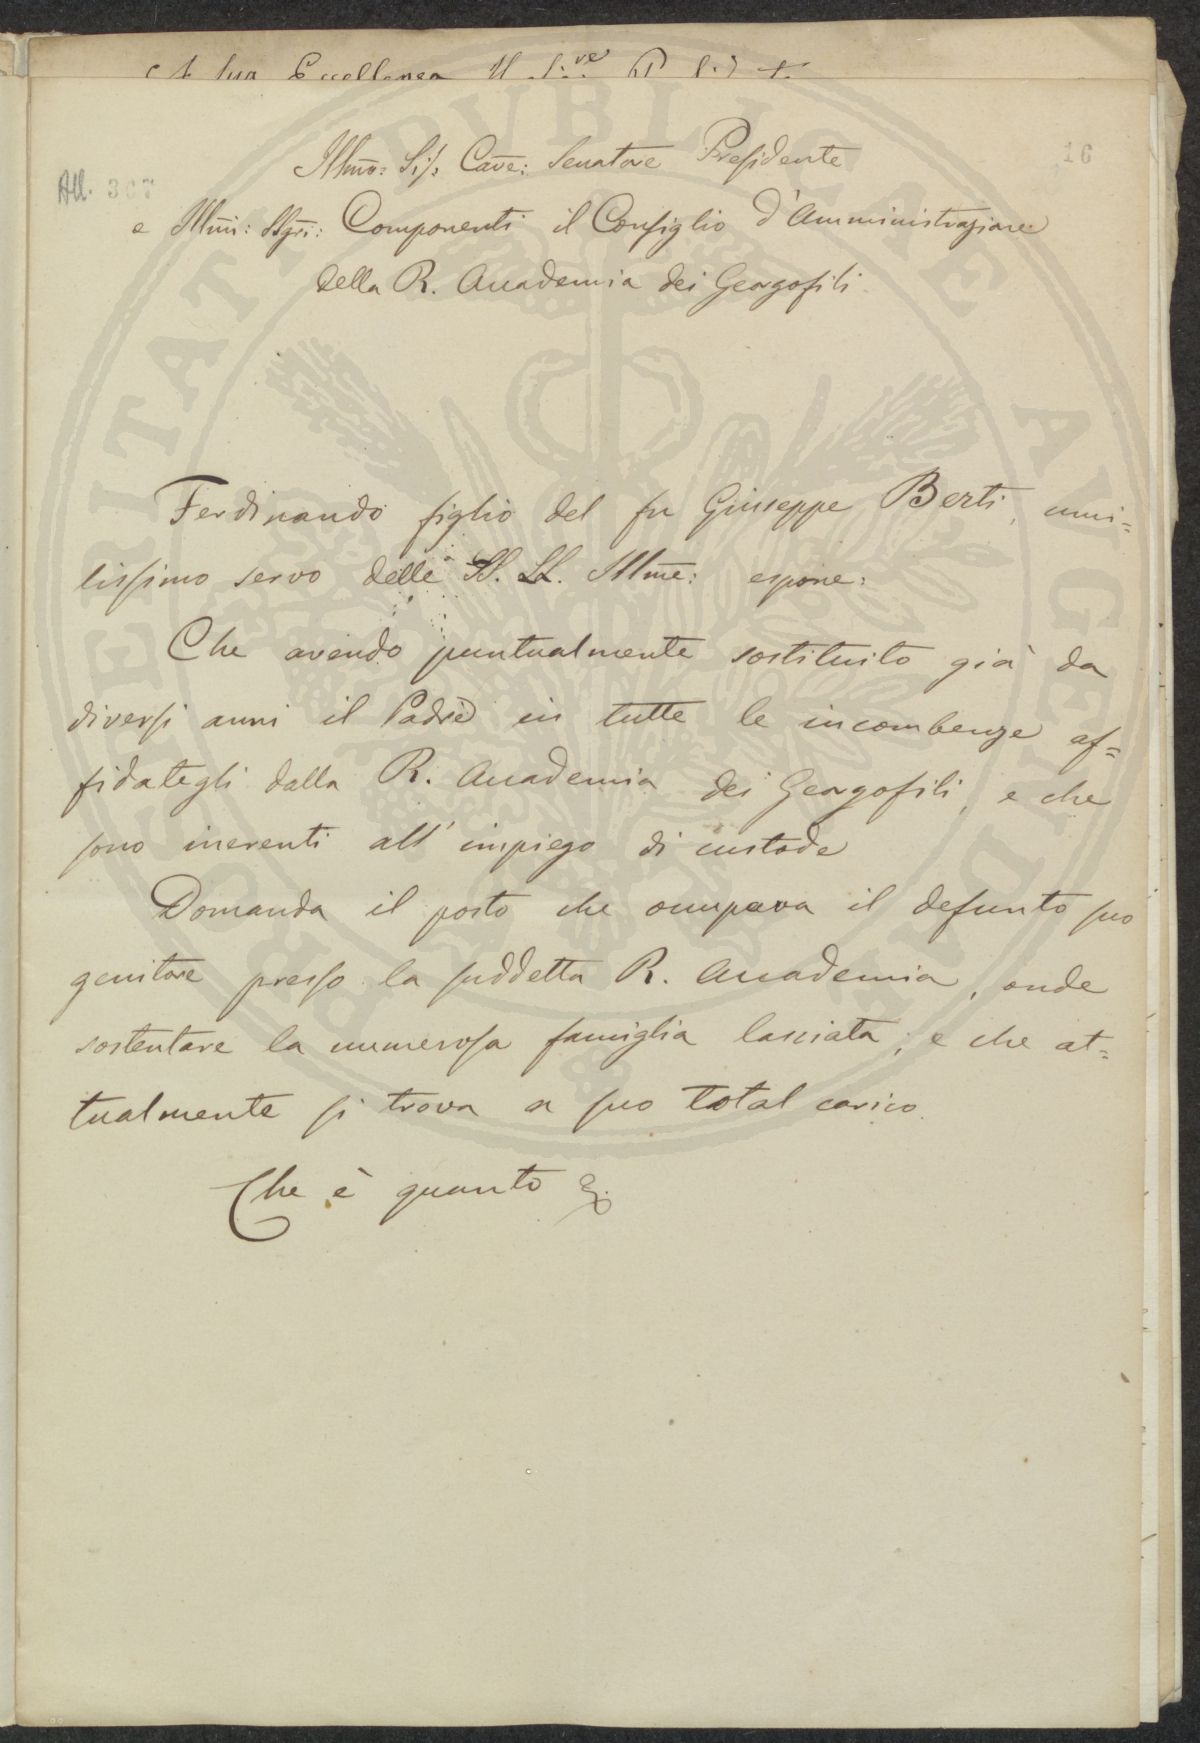 Sua Eccellenza Il
Illmo: Sig: Cave: Senatore Presidente
16
All. 307
e Illmi: SSgri: Componenti il Consiglio d'Amministrazione
della R. Accademia dei Georgofili
Ferdinando figlio del fu Giuseppe Berti, umi=
lissimo servo delle SS. LL. Illme: espone:
Che avendo puntualmente sostituito già da
diversi anni il Padre in tutte le incombenze af=
fidategli dalla R. Accademia dei Georgofili, e che
sono inerenti all'impiego di custode
Domanda il posto che occupava il defunto suo
genitore presso la suddetta R. Accademia, onde
sostentare la numerosa famiglia lasciata, e che at=
tualmente si trova a suo total carico.
Che è quanto &.
PROSPERITATI PUBLICAE AUGENDAE